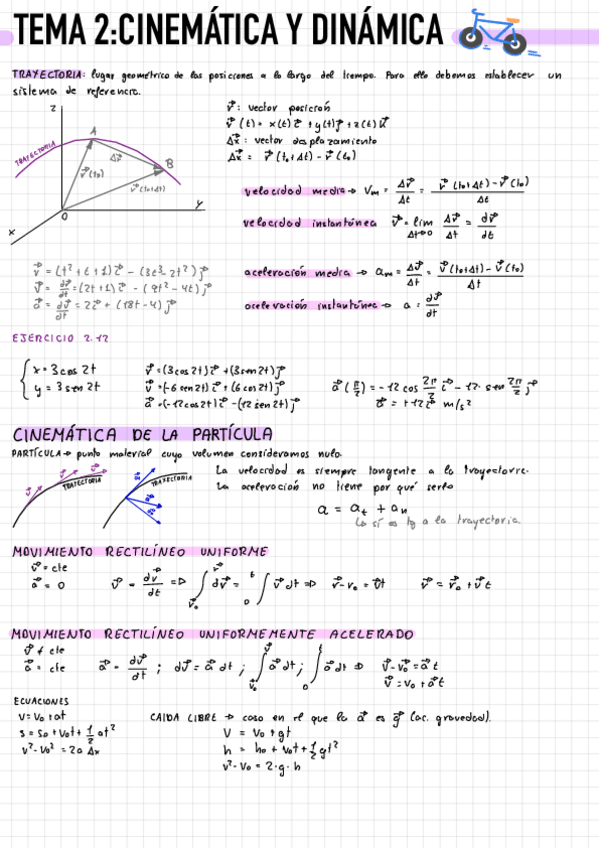 TEMA 2:CINEMÁTICA Y DINÁMICA
TRAYECTORIA: lugar geométrico de las posiciones a lo largo del tiempo. Para ello debemos establecer un
sistema de referencia.
r⃗: vector posición
r⃗(t) = x(t)i⃗ + y(t)j⃗ + z(t)k⃗
Δr⃗: vector desplazamiento
Δr⃗ = r⃗(t₀+Δt) - r⃗(t₀)
z
A
TRAYECTORIA
Δr⃗
B
r⃗(t₀)
r⃗(t₀+Δt)
O
y
x
velocidad media → Vm = Δr⃗/Δt = (r⃗(t₀+Δt) - r⃗(t₀))/Δt
velocidad instantánea v⃗ = lim Δt→0 Δr⃗/Δt = dr⃗/dt
r⃗ = (t² + t + 1)i⃗ - (3t³ - 2t²)j⃗
v⃗ = dr⃗/dt = (2t + 1)i⃗ - (9t² - 4t)j⃗
a⃗ = dv⃗/dt = 2i⃗ + (18t - 4)j⃗
aceleración media → am = Δv⃗/Δt = (v⃗(t₀+Δt) - v⃗(t₀))/Δt
aceleración instantánea → a = dv⃗/dt
EJERCICIO 2.12
x = 3cos 2t
y = 3sen 2t
r⃗ = (3cos2t)i⃗ + (3sen2t)j⃗
v⃗ = (-6sen2t)i⃗ + (6cos2t)j⃗
a⃗ = (-12cos2t)i⃗ - (12sen2t)j⃗
a⃗(π/2) = -12 cos 2π/2 i⃗ - 12 · sen 2π/2 j⃗
a⃗ = +12i⃗ m/s²
CINEMÁTICA DE LA PARTÍCULA
PARTÍCULA → punto material cuyo volumen consideramos nulo.
TRAYECTORIA
TRAYECTORIA
La velocidad es siempre tangente a la trayectoria.
La aceleración no tiene por qué serlo
a = at + an
Lo sí es tg a la trayectoria.
MOVIMIENTO RECTILÍNEO UNIFORME
v⃗ = cte
a⃗ = 0
v⃗ = dr⃗/dt => ∫ dr⃗ = ∫ v⃗ dt => r⃗ - r₀ = v⃗t
r⃗ = r⃗₀ + v⃗t
MOVIMIENTO RECTILÍNEO UNIFORMEMENTE ACELERADO
v⃗ ≠ cte
a⃗ = cte
a⃗ = dv⃗/dt ; dv⃗ = a⃗ dt ; ∫ a⃗ dt ; ∫ a⃗ dt => v⃗ - v⃗₀ = a⃗ t
v⃗ = v₀ + a⃗ t
ECUACIONES
v = v₀ + at
s = s₀ + v₀t + 1/2 at²
v² - v₀² = 2a Δx
CAIDA LIBRE → caso en el que la a⃗ es g⃗ (ac. gravedad).
V = V₀ + gt
h = h₀ + v₀t + 1/2 gt²
v² - v₀ = 2·g·h